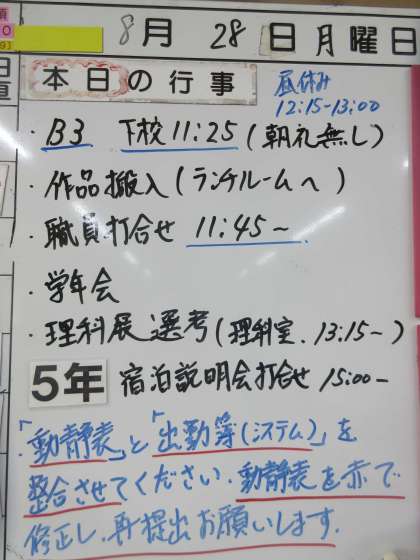 8月 28日月曜日
本日の行事
昼休み
12:15-13:00
・B3 下校11:25(朝礼無し)
・作品搬入(ランチルームへ)
・職員打合せ 11:45~
・学年会
・理科展選考(理科室.13:15~)
5年 宿泊説明会打合せ 15:00~
「動静表」と「出勤簿(システム)」を
整合させてください.動静表を赤で
修正し、再提出お願いします.